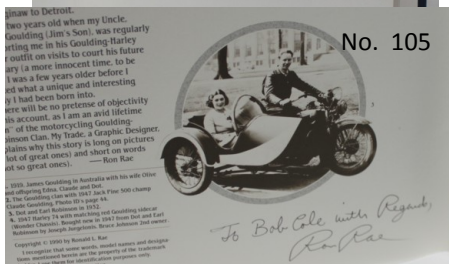 ginaw to Detroit.
two years old when my Uncle,
Goulding (Jim's Son), was regularly
orting me in his Goulding-Harley
r outfit on visits to court his future
ary (a more innocent time, to be
I was a few years older before I
ed what a unique and interesting
y I had been born into.
ere will be no pretense of objectivity
his account, as I am an avid lifetime
n" of the motorcycling Goulding-
binson Clan. My Trade, a Graphic Designer,
plains why this story is long on pictures
lot of great ones) and short on words
ot so great ones). — Ron Rae
1919. James Goulding in Australia with his wife Olive
nd offspring Edna, Claude and Dot.
2. The Goulding clan with 1947 Jack Pine 500 champ
Claude Goulding. Photo ID's page 44.
3. Dot and Earl Robinson in 1932.
4. 1947 Harley 74 with matching red Goulding sidecar
(Wonder Chassis). Bought new in 1947 from Dot and Earl
Robinson by Joseph Jurgensen. Bruce Johnson 2nd owner.
Copyright © 1990 by Ronald L. Rae
I recognize that some words, model names and designa-
tions mentioned herein are the property of the trademark
use them for identification purposes only.
No. 105
3
To Bob Cole with Regards,
Ron Rae